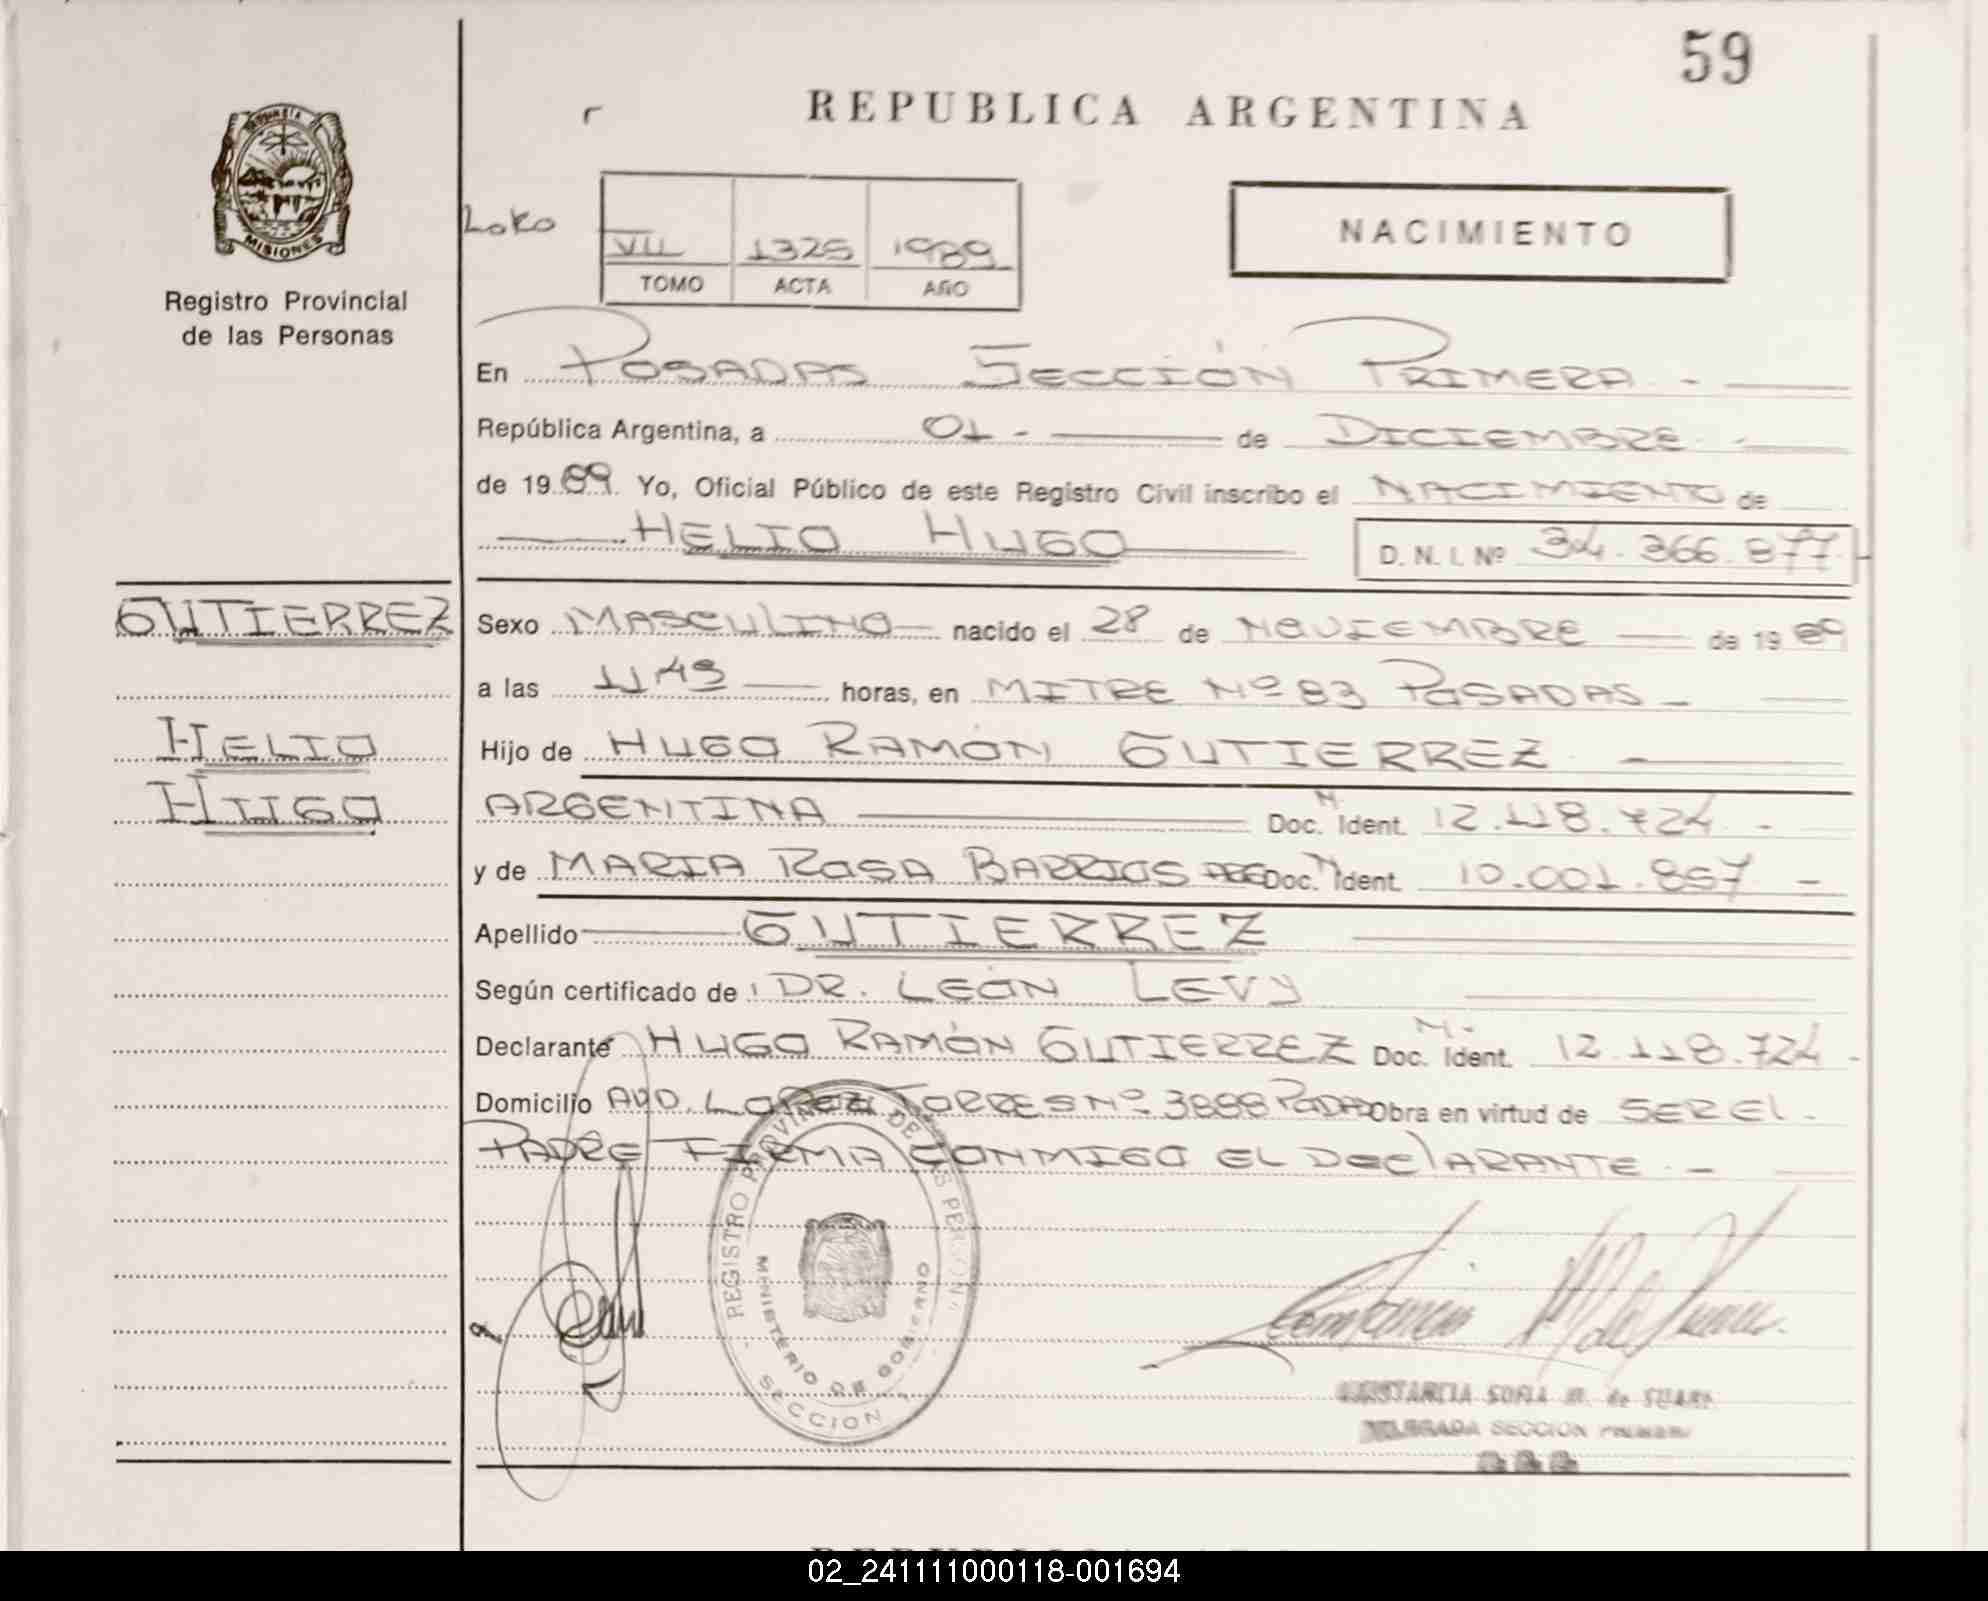 59
REPUBLICA ARGENTINA
MISIONES
Registro Provincial
de las Personas
Loko
VII 1325 1989
TOMO ACTA AÑO
NACIMIENTO
En POSADAS SECCIÓN PRIMERA -
República Argentina, a 01 - de DICIEMBRE -
de 1989. Yo, Oficial Público de este Registro Civil inscribo el NACIMIENTO de
HELIO HUGO D. N. I. Nº 34.366.877-
GUTIERREZ
HELIO
HUGO
Sexo MASCULINO nacido el 28 de NOVIEMBRE de 1989
a las 11 horas, en MITRE Nº 83 POSADAS -
Hijo de HUGO RAMÓN GUTIERREZ -
ARGENTINA Doc. M. Ident. 12.118.724 -
y de MARIA ROSA BARRIOS ARG Doc. M Ident. 10.001.857 -
Apellido GUTIERREZ
Según certificado de DR. LEÓN LEVY
Declarante HUGO RAMÓN GUTIERREZ Doc. M. Ident. 12.118.724 -
Domicilio AVD. LOPEZ TORRES Nº 3888 Obra en virtud de SER EL
PADRE FIRMA CONMIGO EL DECLARANTE -
REGISTRO PROVINCIAL DE LAS PERSONAS
MINISTERIO DE GOBIERNO
SECCION 1
SOFIA M. de
DELEGADA SECCION PRIMERA
02_241111000118-001694